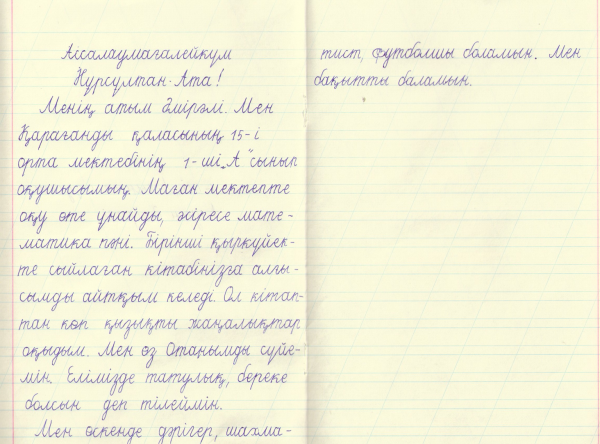 Ассалаумагалейкум
Нұрсұлтан-Ата!
Менің атым Әміралі. Мен
Қарағанды қаласының 15-і
орта мектебінің 1-ші „А" сынып
оқушысымың. Маған мектепте
оқу өте ұнайды, әсіресе мате-
матика пәні. Бірінші қыркүйек-
те сыйлаған кітабіңізға алғы-
сымды айтқым келеді. Ол кітап-
тан көп қызықты жаңалықтар
оқыдым. Мен өз Отанымды сүйе-
мін. Елімізде татулық, береке
болсын деп тілеймін.
Мен өскенде дәрігер, шахма-
тист, футболшы боламын. Мен
бақытты баламын.